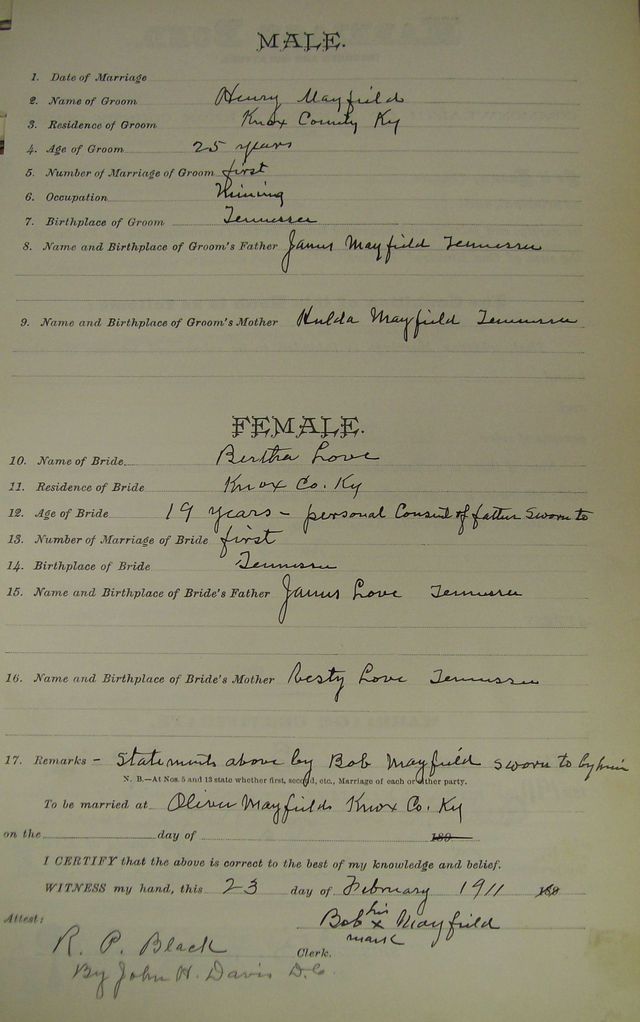 MALE.
1. Date of Marriage
2. Name of Groom Henry Mayfield
3. Residence of Groom Knox County Ky
4. Age of Groom 25 years
5. Number of Marriage of Groom first
6. Occupation Mining
7. Birthplace of Groom Tennessee
8. Name and Birthplace of Groom's Father James Mayfield Tennessee
9. Name and Birthplace of Groom's Mother Hulda Mayfield Tennessee
FEMALE.
10. Name of Bride Bertha Love
11. Residence of Bride Knox Co. Ky
12. Age of Bride 19 years - personal Consent of father sworn to
13. Number of Marriage of Bride first
14. Birthplace of Bride Tennessee
15. Name and Birthplace of Bride's Father James Love Tennessee
16. Name and Birthplace of Bride's Mother Love Tennessee
17. Remarks - Statements above by Bob Mayfield sworn to by him
N. B.—At Nos. 5 and 13 state whether first, second, etc., Marriage of each or either party.
To be married at Oliver Mayfields Knox Co. Ky
on the day of 189
I CERTIFY that the above is correct to the best of my knowledge and belief.
WITNESS my hand, this 23 day of February 1911 189
Attest: Bob his x Mayfield
mark
R. P. Black Clerk.
By John H. Davis D.C.